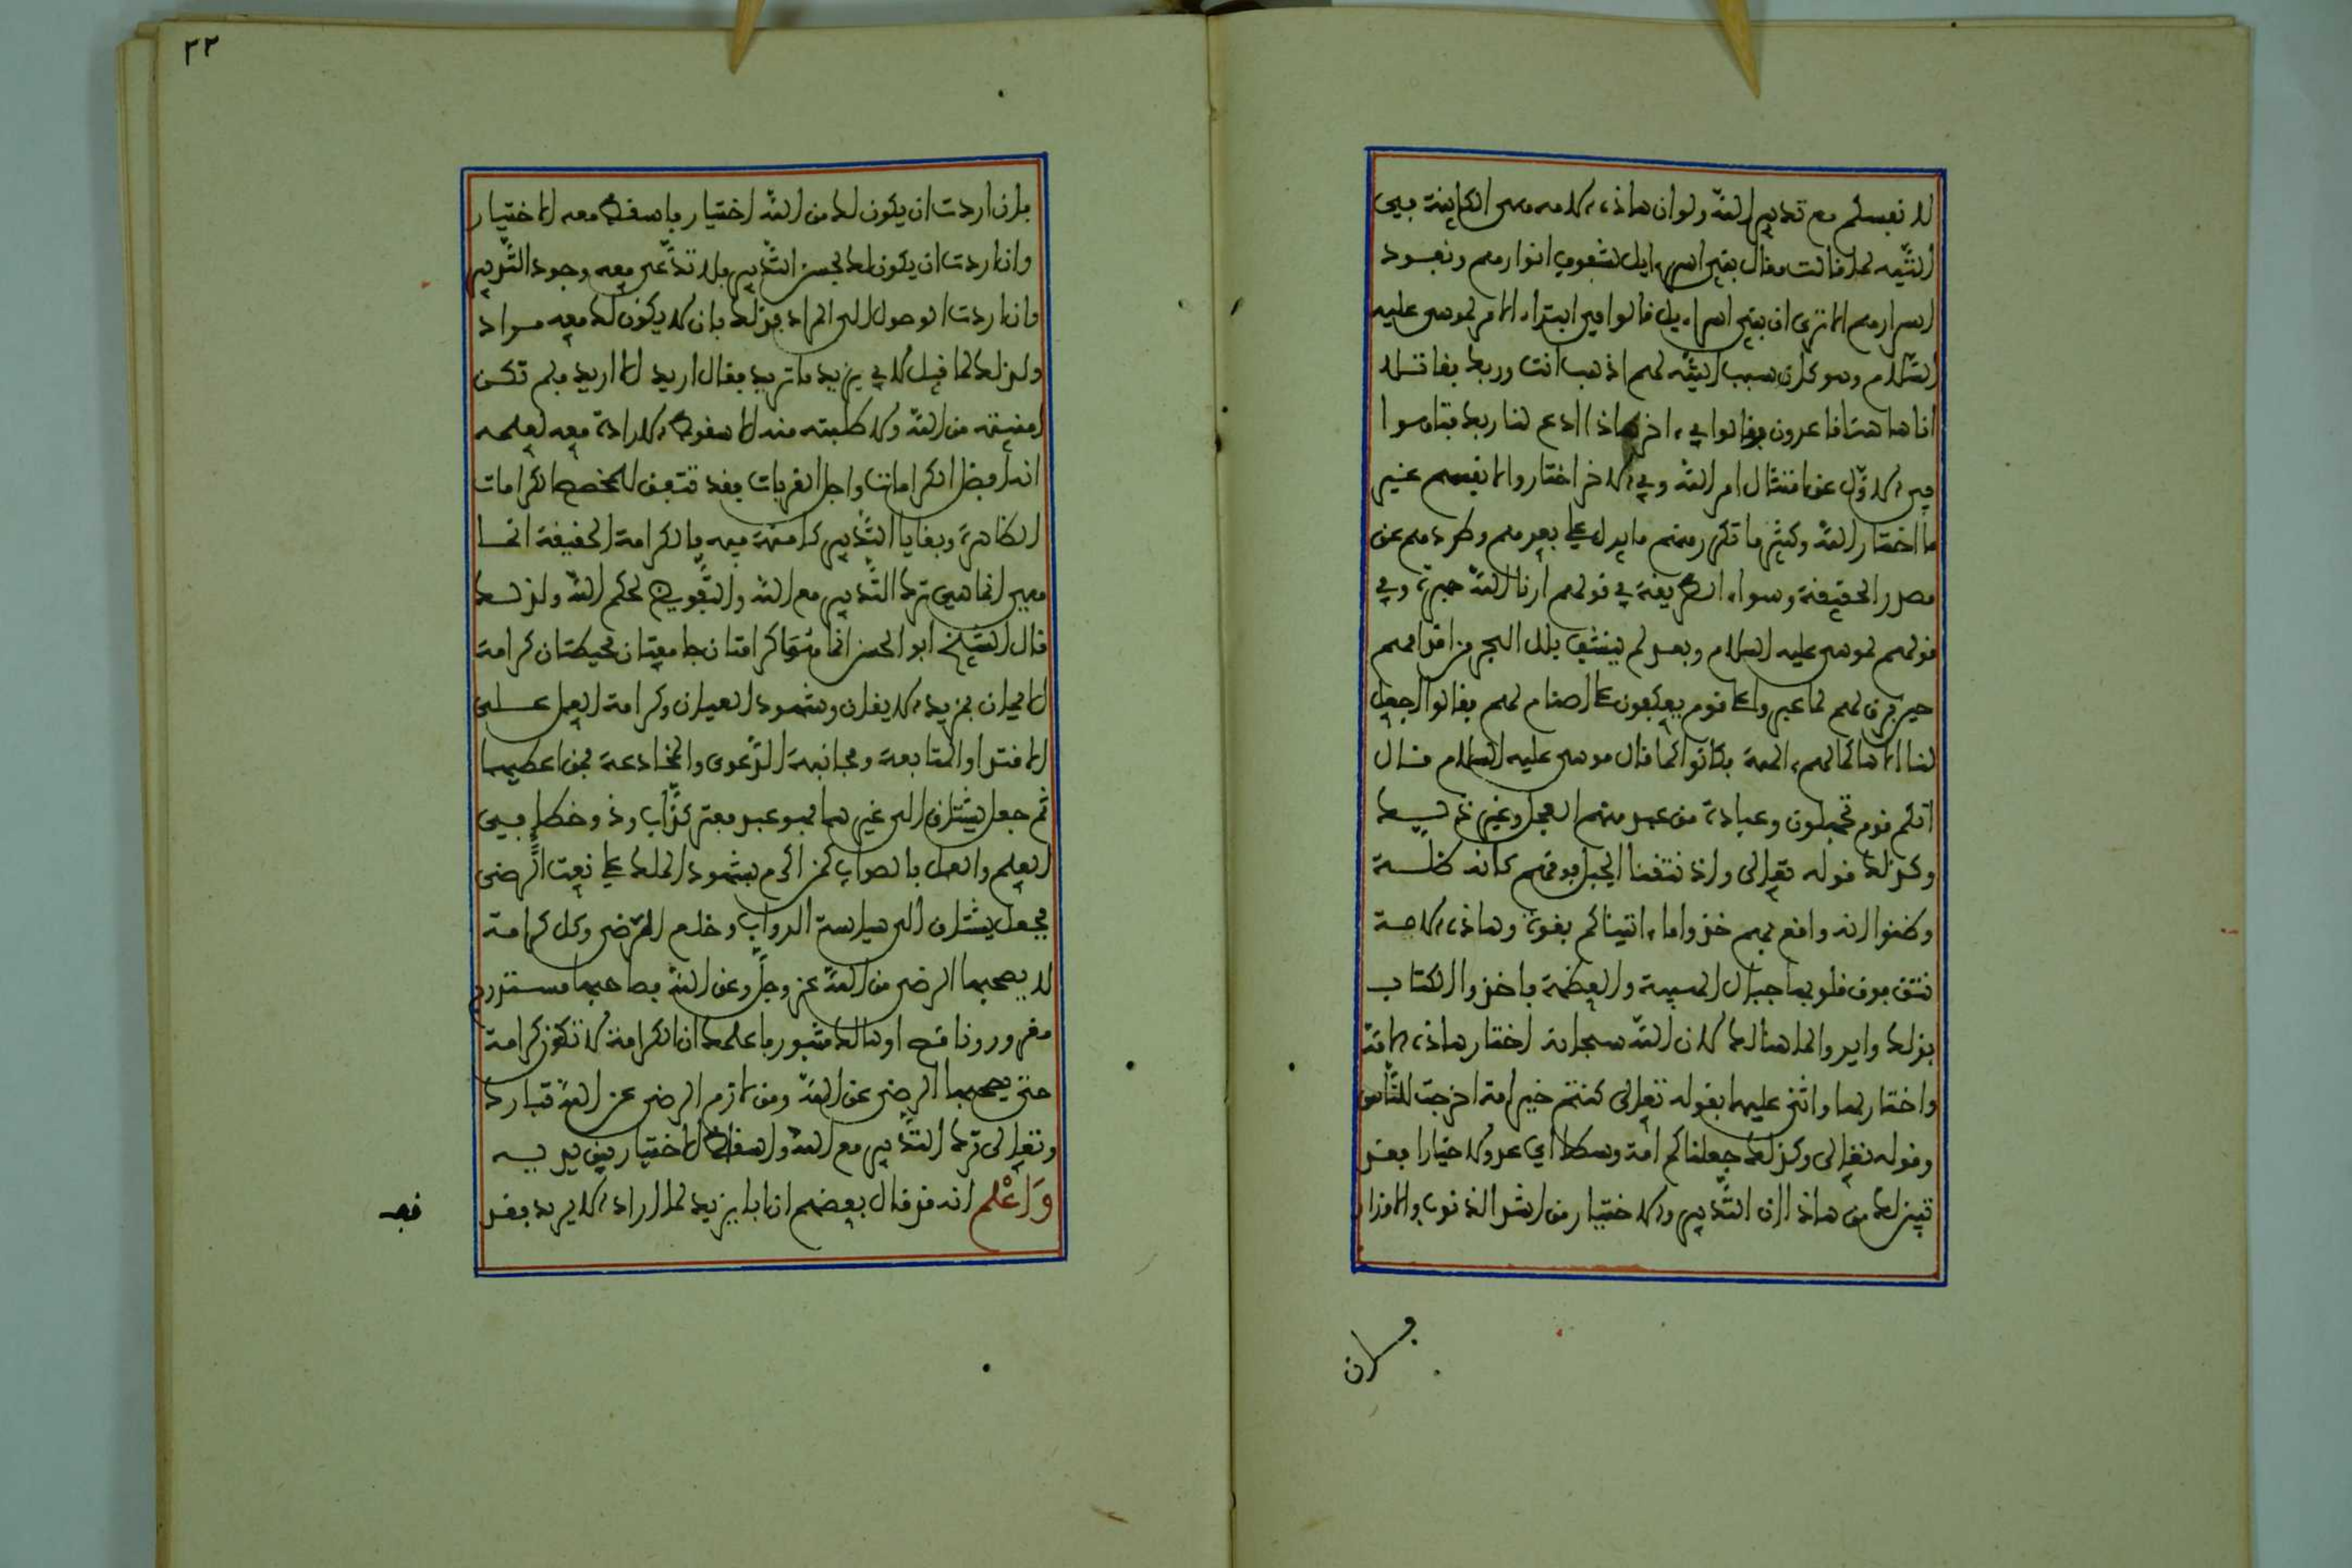 لا نفسكم مع تدبير الله ولو ان هاذه الامة هي الكاينة في
التيه لما قالت مقال بني اسراءيل لشفوف انوارهم ونفوذ
اسرارهم الا ترى ان بني اسراءيل قالوا في ابتداء الامر لموسى عليه
السلام وهو كان سبب التيه لهم اذهب انت وربك فقاتلا
انا هاهنا قاعدون وقالوا في ءاخر هاذا ادع لنا ربك فتابوا
في الاول عن امتثال امر الله وفي الاخر اختاروا لانفسهم غير
ما اختار الله وكثير ما تكرر منهم ما يدل على بعدهم وطردهم عن
مصدر الحقيقة وسواء الطريقة في قولهم ارنا الله جهرة وفي
قولهم لموسى عليه السلام وبعد لم ينشف بلل البحر من اقدامهم
حين فرق لهم لما عبروا على قوم يعكفون على اصنام لهم فقالوا اجعل
لنا الاها كما لهم ءالهة فكانوا كما قال موسى عليه السلام قال
انكم قوم تجهلون وعبادة من عبد منهم العجل وغير ذلك
وكذلك قوله تعالى واذ نتقنا الجبل فوقهم كانه ظلة
وظنوا انه واقع بهم خذوا ما ءاتيناكم بقوة وهاذه الامة
نتق فوق قلوبها جبال الهيبة والعظمة فاخذوا الكتاب
بذلك وايدوا لما هنالك لان الله سبحانه اختار هاذه الامة
واختار لها واثنى عليها بقوله تعالى كنتم خير امة اخرجت للناس
وقوله تعالى وكذلك جعلناكم امة وسطا اي عدولا خيارا فقد
تبين لك من هاذا ان التدبير والاختيار من اشد الذنوب والاوزار
فان
٢٢
فان اردت ان يكون لك من الله اختيار فاسقط معه الاختيار
وان اردت ان يكون لك حسن التدبير فلا تدّعي معه وجود التدبير
وان اردت الوصول الى المراد فذلك بان لا يكون لك معه مراد
ولذلك لما قيل لابي يزيد ما تريد فقال اريد الا اريد فلم تكن
امنيته من الله ولا طلبته منه الا سقوط الارادة معه لعلمه
انها افضل الكرامات واجل القربات وقد تتفق للمخصص الكرامات
الظاهرة وبقايا التدبير كامنة فيه فالكرامة الحقيقة انما
هي انما هي ترك التدبير مع الله والتفويض لحكم الله ولذلك
قال الشيخ ابو الحسن انما هما كرامتان جامعتان محيطتان كرامة
الايمان بمزيد الايقان وشهود العيان وكرامة العمل على
الاقتدا والمتابعة ومجانبة الدعوى والمخادعة فمن اعطيهما
ثم جعل يشتاق الى غيرهما فهو عبد مفتر كذاب وذو خطإ في
العلم والعمل بالصواب كمن اكرم بشهود الملك على نعت الرضى
فجعل يشتاق الى سياسة الدواب وخلع المرضى وكل كرامة
لا يصحبها الرضى من الله عز وجل وعن الله فصاحبها مستدرج
مغرور وناقص او هالك مثبور فاعلمك ان الكرامة لا تكون كرامة
حتى يصحبها الرضى عن الله ومن لازم الرضى عن الله تبارك
وتعالى ترك التدبير مع الله واسقاط الاختيار بين يديه
وَاعْلم انه قد قال بعضهم ان ابا يزيد لما اراد الا يريد فقد
فقد